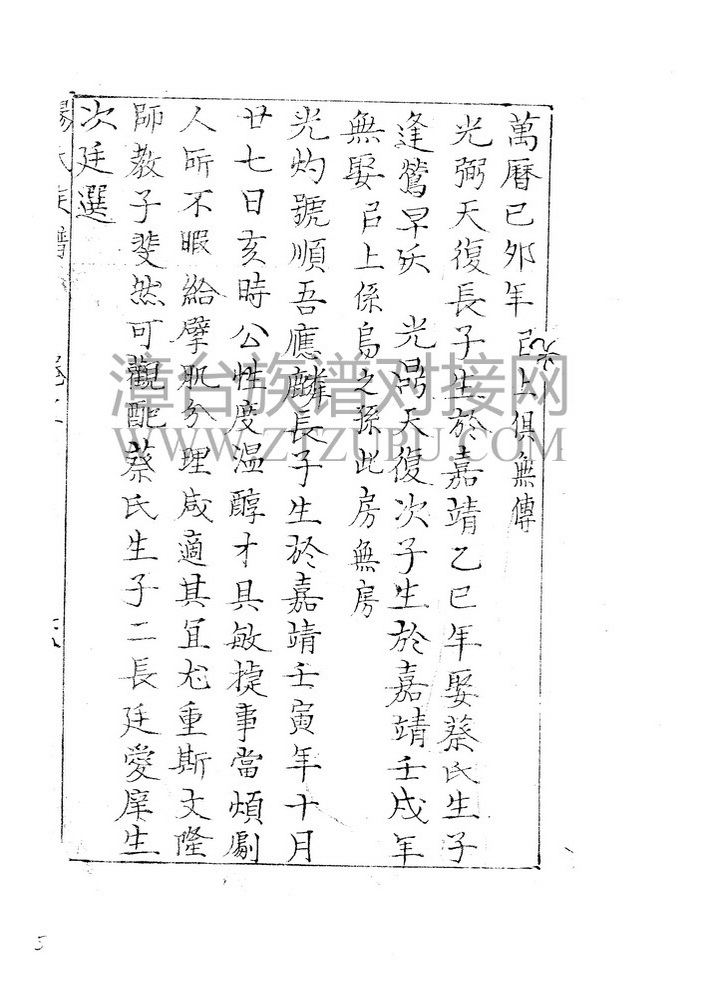 萬曆己卯年 㠯上俱無傳
光弼天復長子生於嘉靖乙巳年娶蔡氏生子
逢鶯早殀 光晑天復次子生於嘉靖壬戌年
無娶 㠯上係烏之孫此房無房
光灼號順吾應麟長子生於嘉靖壬寅年十月
廿七日亥時公性度溫醇才具敏捷事當煩劇
人所不暇給擘肌分理咸適其宜尤重斯文隆
師教子斐然可觀配蔡氏生子二長廷愛庠生
次廷選
楊氏族譜
漳台族谱对接网
WWW.ZTZUPU.COM
5